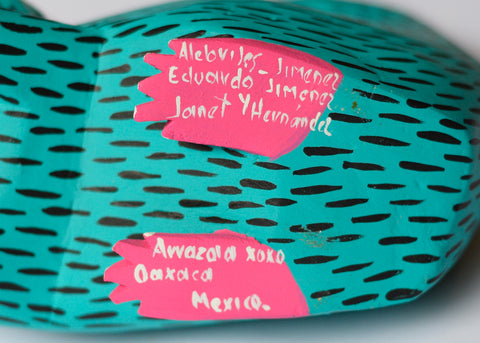 Alebrijes-Jimenez
Eduardo Jiménez
Janet Y Hernández
Arrazola xoxo
Oaxaca
Mexico.